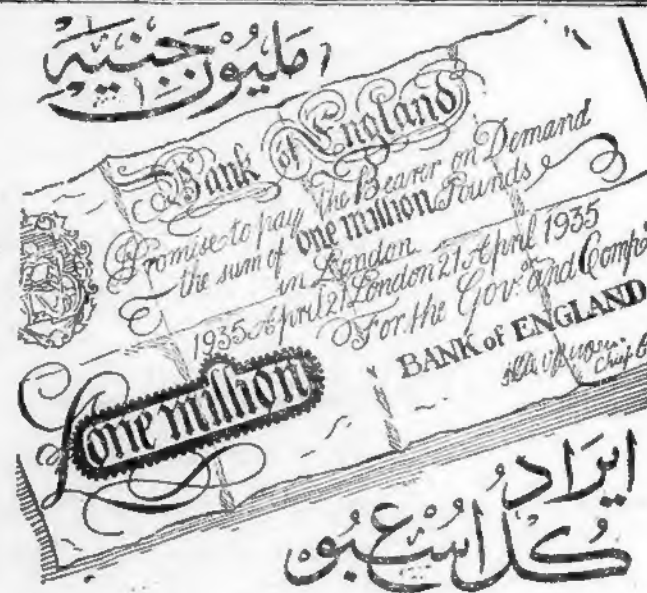 مليون جنيه
Bank of England
Promise to pay the Bearer on Demand
the sum of one million Pounds
in London
1935 April 21 London 21 April 1935
For the Gov.ʳ and Comp.ª
BANK of ENGLAND
Chief
£ one million
ايَراد
كُل اسْبُوع